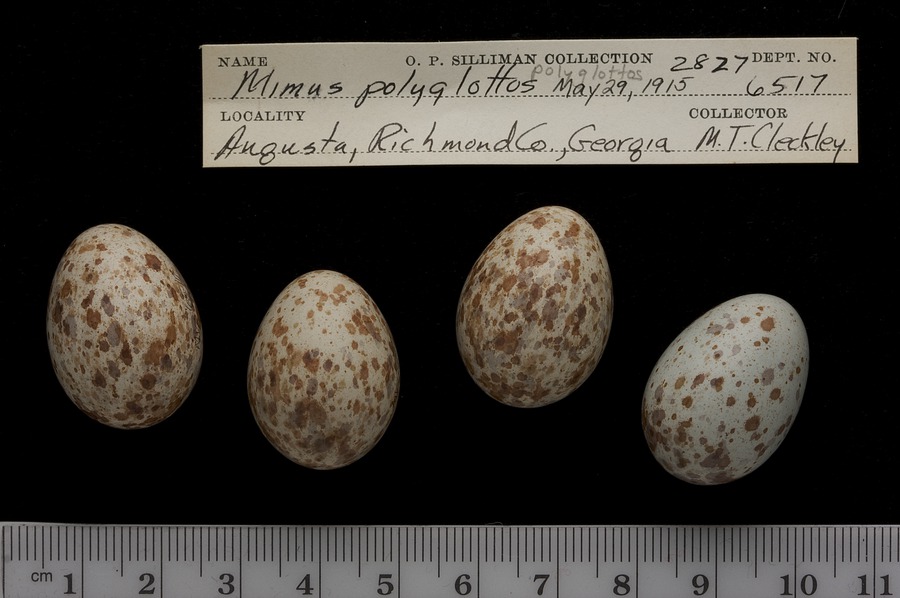 NAME O. P. SILLIMAN COLLECTION 2827 DEPT. NO.
polyglottos
Mimus polyglottos May 29, 1915 6517
LOCALITY COLLECTOR
Augusta, Richmond Co., Georgia M.T. Cleckley
cm 1 2 3 4 5 6 7 8 9 10 11